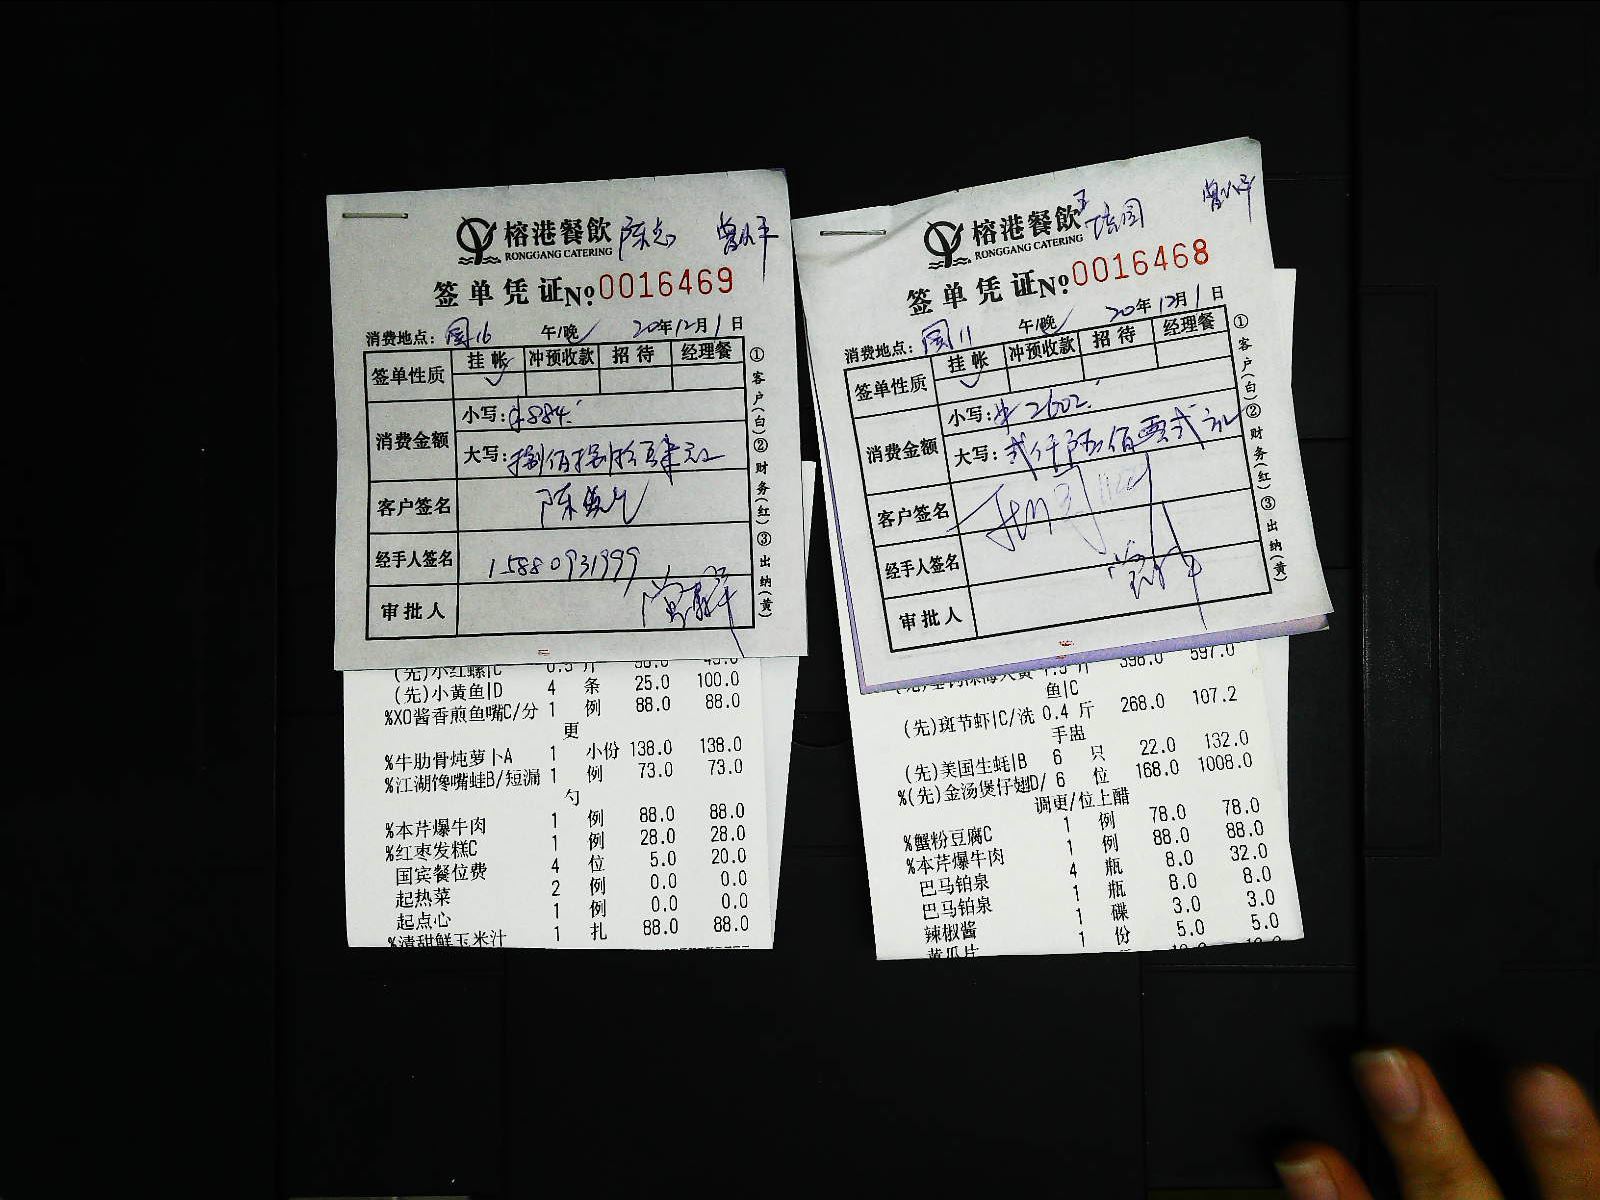 榕港餐飲 陈总
RONGGANG CATERING
签单凭证 No 0016469
消费地点：国16 午/晚 20年12月1日
签单性质 挂帐 冲预收款 招待 经理餐
消费金额 小写：¥884.
大写：捌佰捌拾肆元
客户签名 陈
经手人签名 15880931999
审批人
①客户(白)②财务(红)③出纳(黄)
(先)小红螺|C 0.5 斤
(先)小黄鱼|D 4 条 25.0 100.0
%XO酱香煎鱼嘴C/分 1 例 88.0 88.0
更
%牛肋骨炖萝卜A 1 小份 138.0 138.0
%江湖馋嘴蛙B/短漏 1 例 73.0 73.0
勺
%本芹爆牛肉 1 例 88.0 88.0
%红枣发糕C 1 例 28.0 28.0
国宾餐位费 4 位 5.0 20.0
起热菜 2 例 0.0 0.0
起点心 1 例 0.0 0.0
%清甜鲜玉米汁 1 扎 88.0 88.0
榕港餐飲
RONGGANG CATERING
签单凭证 No 0016468
消费地点：国11 午/晚 20年12月1日
签单性质 挂帐 冲预收款 招待 经理餐
消费金额 小写：¥2602.
大写：贰仟陆佰零贰元
客户签名
经手人签名
审批人
①客户(白)②财务(红)③出纳(黄)
398.0 597.0
鱼|C
(先)斑节虾|C/洗 0.4 斤 268.0 107.2
手盅
(先)美国生蚝|B 6 只 22.0 132.0
%(先)金汤煲仔翅D/ 6 位 168.0 1008.0
调更/位上醋
%蟹粉豆腐C 1 例 78.0 78.0
%本芹爆牛肉 1 例 88.0 88.0
巴马铂泉 4 瓶 8.0 32.0
巴马铂泉 1 瓶 8.0 8.0
辣椒酱 1 碟 3.0 3.0
黄瓜片 1 份 5.0 5.0